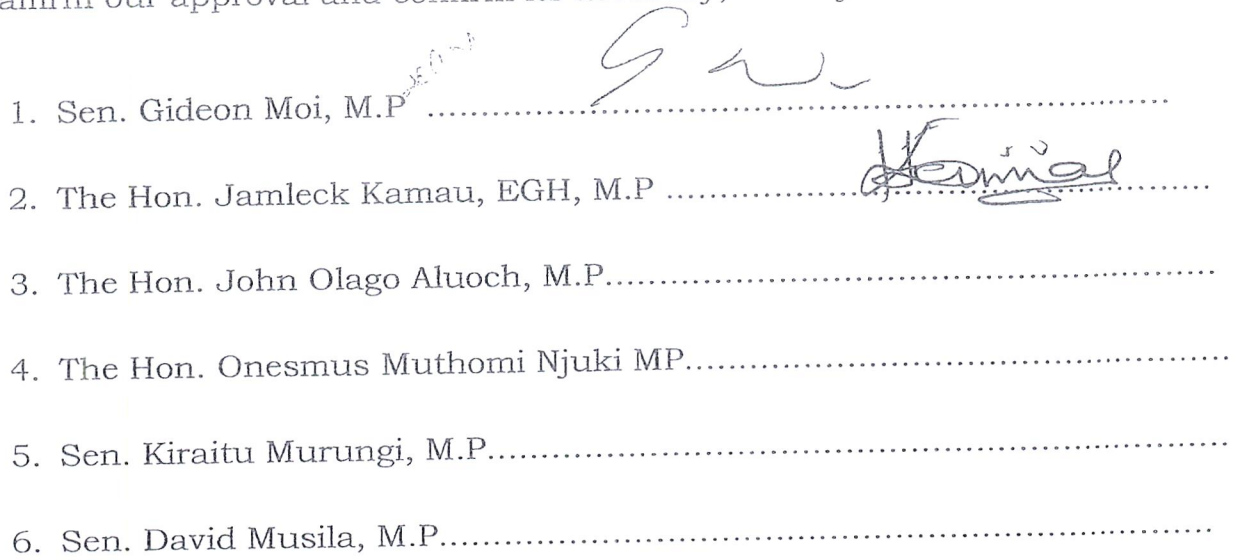 our approval and confirm its
1. Sen. Gideon Moi, M.P ..............................................................................
2. The Hon. Jamleck Kamau, EGH, M.P ..........................................................
3. The Hon. John Olago Aluoch, M.P................................................................
4. The Hon. Onesmus Muthomi Njuki MP.........................................................
5. Sen. Kiraitu Murungi, M.P.............................................................................
6. Sen. David Musila, M.P..................................................................................